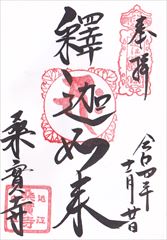 奉拝
令和四年
十一月廿日
釋迦如来
桑實寺